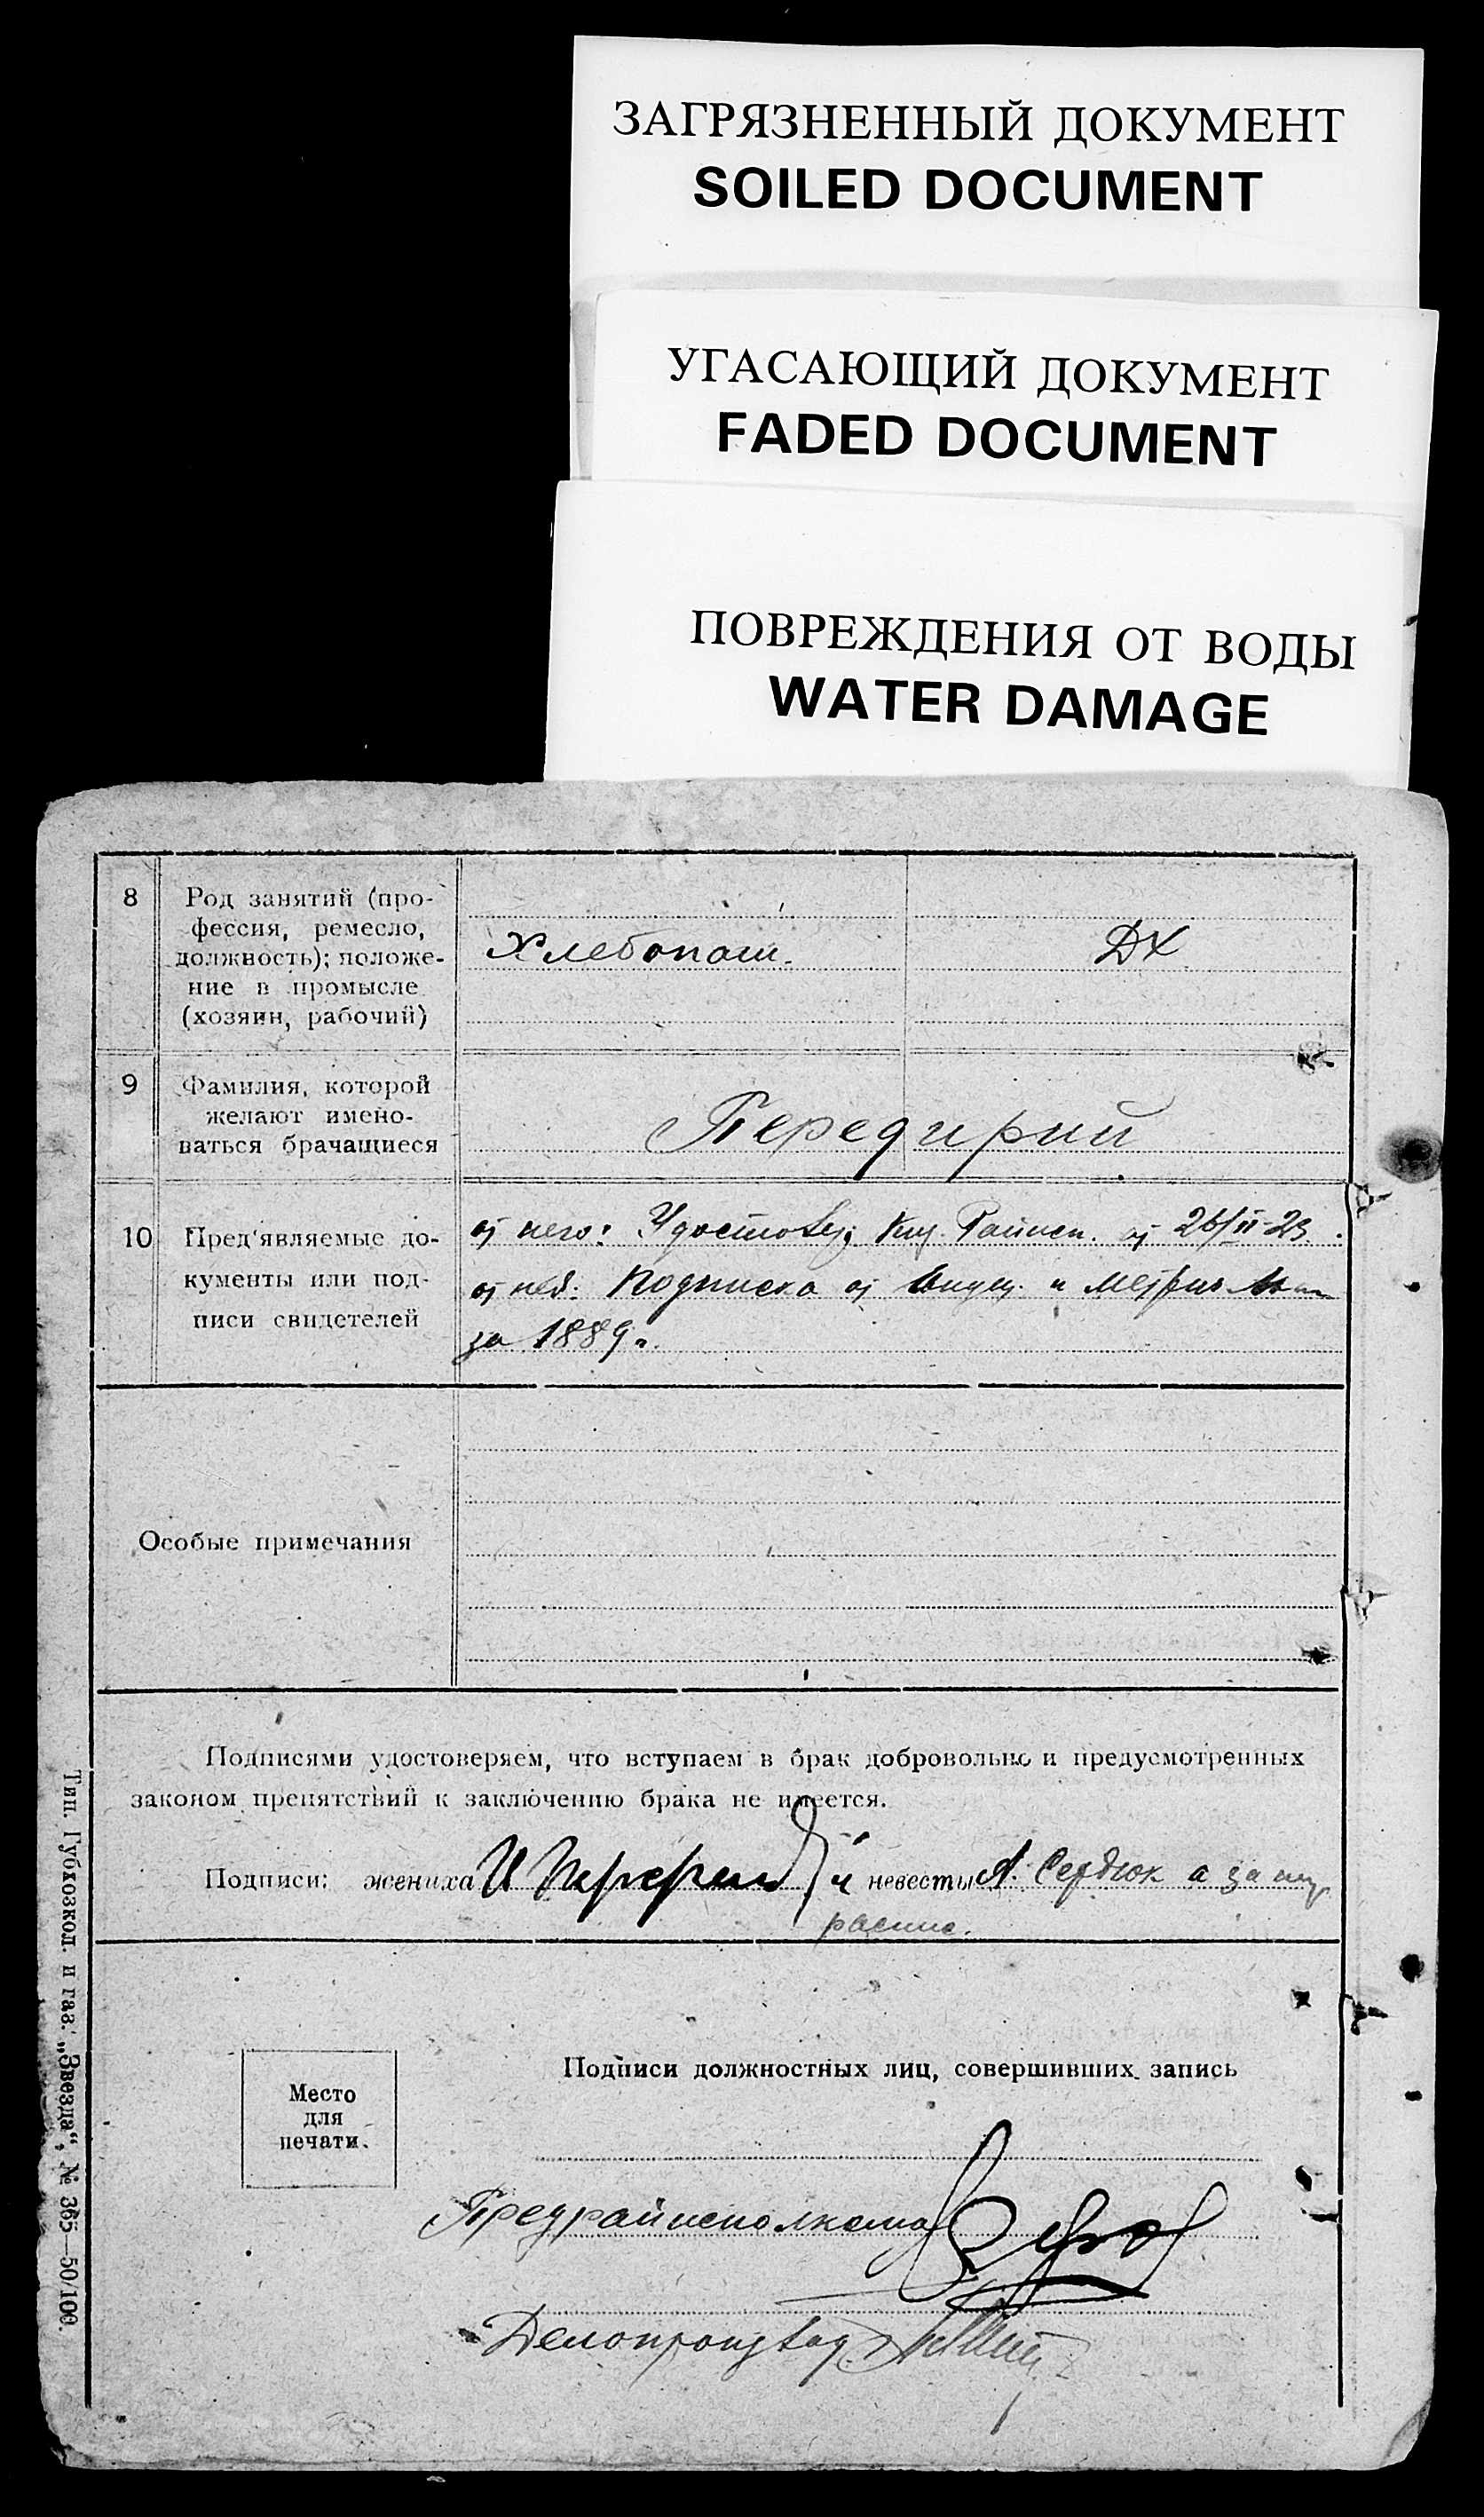 ЗАГРЯЗНЕННЫЙ ДОКУМЕНТ
SOILED DOCUMENT
УГАСАЮЩИЙ ДОКУМЕНТ
FADED DOCUMENT
ПОВРЕЖДЕНИЯ ОТ ВОДЫ
WATER DAMAGE
8
Род занятий (про-
фессия, ремесло,
должность); положе-
ние в промысле
(хозяин, рабочий)
Хлебопаш.
ДХ
9
Фамилия, которой
желают имено-
ваться брачащиеся
Передирий
10
Пред'являемые до-
кументы или под-
писи свидетелей
от него: Удостовер; Райисп. от 26/II-23.
от неё: Подписка от и Метрич.
за 1889 г.
Особые примечания
Подписями удостоверяем, что вступаем в брак добровольно и предусмотренных
законом препятствий к заключению брака не имеется.
Подписи: жениха И невесты А. Сердюк а за
распис.
Место
для
печати.
Подписи должностных лиц, совершивших запись
Предрайисполкома
Делопроизвод
Тип. Губхозкол. и газ. „Звезда“, № 365—50/100.